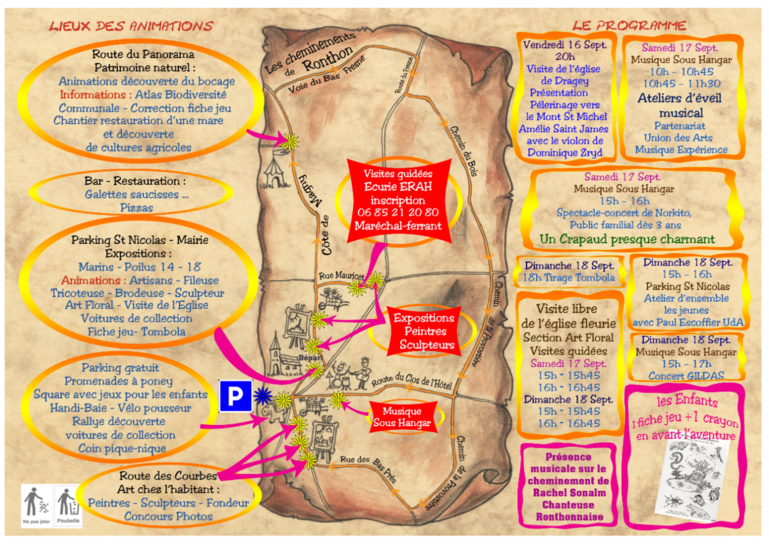 LIEUX DES ANIMATIONS
Route du Panorama
Patrimoine naturel :
Animations découverte du bocage
Informations : Atlas Biodiversité
Communale - Correction fiche jeu
Chantier restauration d'une mare
et découverte
de cultures agricoles
Bar - Restauration :
Galettes saucisses ...
Pizzas
Parking St Nicolas - Mairie
Expositions :
Marins - Poilus 14 - 18
Animations : Artisans - Fileuse
Tricoteuse - Brodeuse - Sculpteur
Art Floral - Visite de l'Eglise
Voitures de collection
Fiche jeu- Tombola
Parking gratuit
Promenades à poney
Square avec jeux pour les enfants
Handi-Baie - Vélo pousseur
Rallye découverte
voitures de collection
Coin pique-nique
Route des Courbes
Art chez l'habitant :
Peintres - Sculpteurs - Fondeur
Concours Photos
Ne pas jeter
Poubelle
Les cheminements
de Ronthon
Voie du Bas Fresne
Route du Fresne
Chemin du Bois
Côte de Magny
Visites guidées
Ecurie ERAH
inscription
06 85 21 20 80
Maréchal-ferrant
Rue Mauricet
Expositions
Peintres
Sculpteurs
Départ
P
Route du Clos de l'Hôtel
Musique
Sous Hangar
Rue des Bas Prés
Chemin de la Percostière
LE PROGRAMME
Vendredi 16 Sept.
20h
Visite de l'église
de Dragey
Présentation
Pélerinage vers
le Mont St Michel
Amélie Saint James
avec le violon de
Dominique Zryd
Samedi 17 Sept.
Musique Sous Hangar
10h - 10h45
10h45 - 11h30
Ateliers d'éveil
musical
Partenariat
Union des Arts
Musique Expérience
Samedi 17 Sept.
Musique Sous Hangar
15h - 16h
Spectacle-concert de Norkito,
Public familial dès 3 ans
Un Crapaud presque charmant
Dimanche 18 Sept.
18h Tirage Tombola
Dimanche 18 Sept.
15h - 16h
Parking St Nicolas
Atelier d'ensemble
les jeunes
avec Paul Escoffier UdA
Visite libre
de l'église fleurie
Section Art Floral
Visites guidées
Samedi 17 Sept.
15h - 15h45
16h - 16h45
Dimanche 18 Sept.
15h - 15h45
16h - 16h45
Dimanche 18 Sept.
Musique Sous Hangar
15h - 17h
Concert GILDAS
les Enfants
1 fiche jeu +1 crayon
en avant l'aventure
Présence
musicale sur le
cheminement de
Rachel Sonalm
Chanteuse
Ronthonnaise